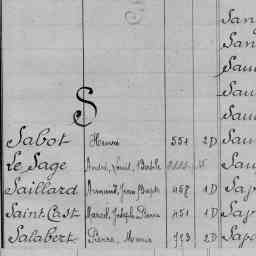 San
San
Sau
Sau
Sau
S
Sabot Henri 551 2D Sau
Le Sage André, Louis, Sau
Saillard Armand, Jean Bapte 457 1D Sap
Saint Cast Marcel, Joseph, Pierre 451 1D Sap
Salabert Pierre, Marie 723 2D Sapo